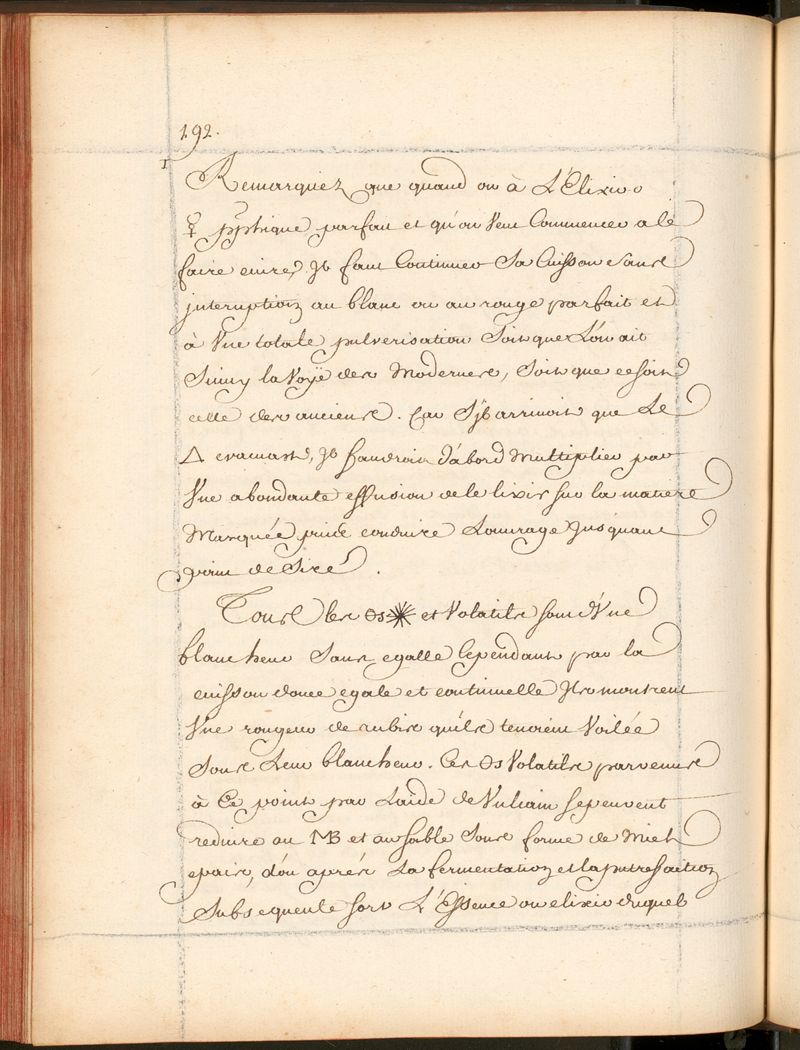 192.
Remarquez que quand on à L'Elixir
☿ pphique parfait et qu'on Veut Commencer a le
faire cuire, Il faut Continuer Sa Cuisson Sans
interuption au blanc ou au rouge parfait et
à Vne totale pulverisation Soit que L'on ait
Suivy la Voÿe des Modernes, Soit que ce soit
celle des anciens. Car S'il arrivoit que Le
△ cessast, Il faudroit d'abord Multiplier par
Vne abondante effusion de lelixir sur la matiere
Marquée puis conduire Louvrage Jusquau
point de fixe.
Tous les ⊖s ✳ et Volatils sont d'Vne
blancheur Sans egalle Cependant par la
cuisson douce egale et continuelle Ils montrent
Vne rougeur de rubis qu'ils tenoient Voilée
Sous Leur blancheur. Ces ⊖s Volatils parvenus
à Ce point par Laide de Vulcain se peuvent
reduire au MB et au sable Sous forme de Miel
epais, d'ou aprés La fermentation et la putrefaction
Subsequente sort L'Essence ou elixir duquel